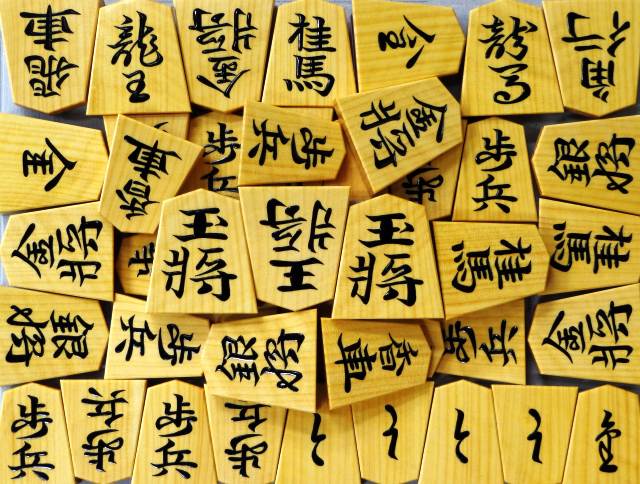 香車
龍王
金将
桂馬
金
龍馬
飛行
金
香車
歩兵
歩兵
金将
歩兵
歩兵
銀将
金将
歩
王将
王将
王将
桂馬
桂馬
銀将
歩兵
銀将
香車
歩兵
金将
歩兵
歩兵
歩兵
歩兵
と
と
と
と
全